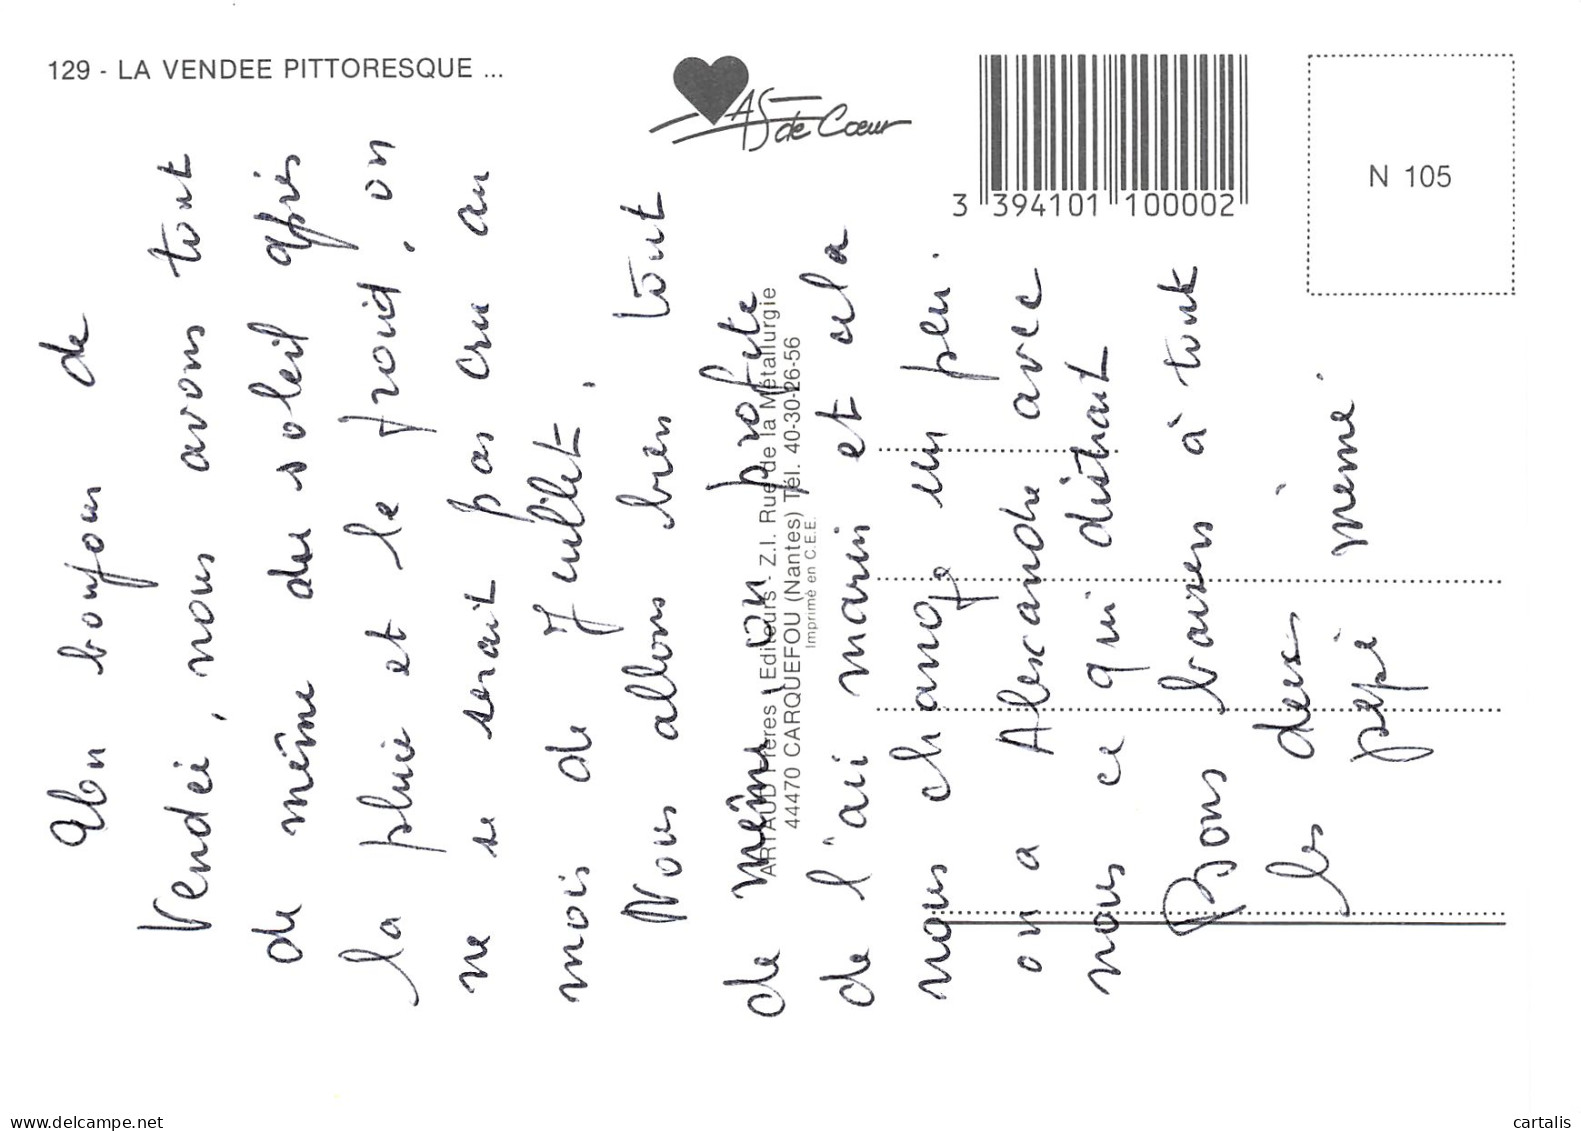 129 - LA VENDEE PITTORESQUE ...
AS de Cœur
3 394101 100002
N 105
Un bonjour de
Vendée, nous avons tout
de même du soleil après
la pluie et le froid, on
ne se serait pas cru au
mois de Juillet.
Nous allons bien tout
de même on profite
de l'air marin et cela
nous change un peu.
on a Alexandre avec
nous ce qui distrait
Bons baisers à tout
les deux
pépé mémé.
ARTAUD Frères - Editeurs - Z.I. Rue de la Métallurgie
44470 CARQUEFOU (Nantes) Tél. 40-30-26-56
Imprimé en C.E.E.
www.delcampe.net
cartalis